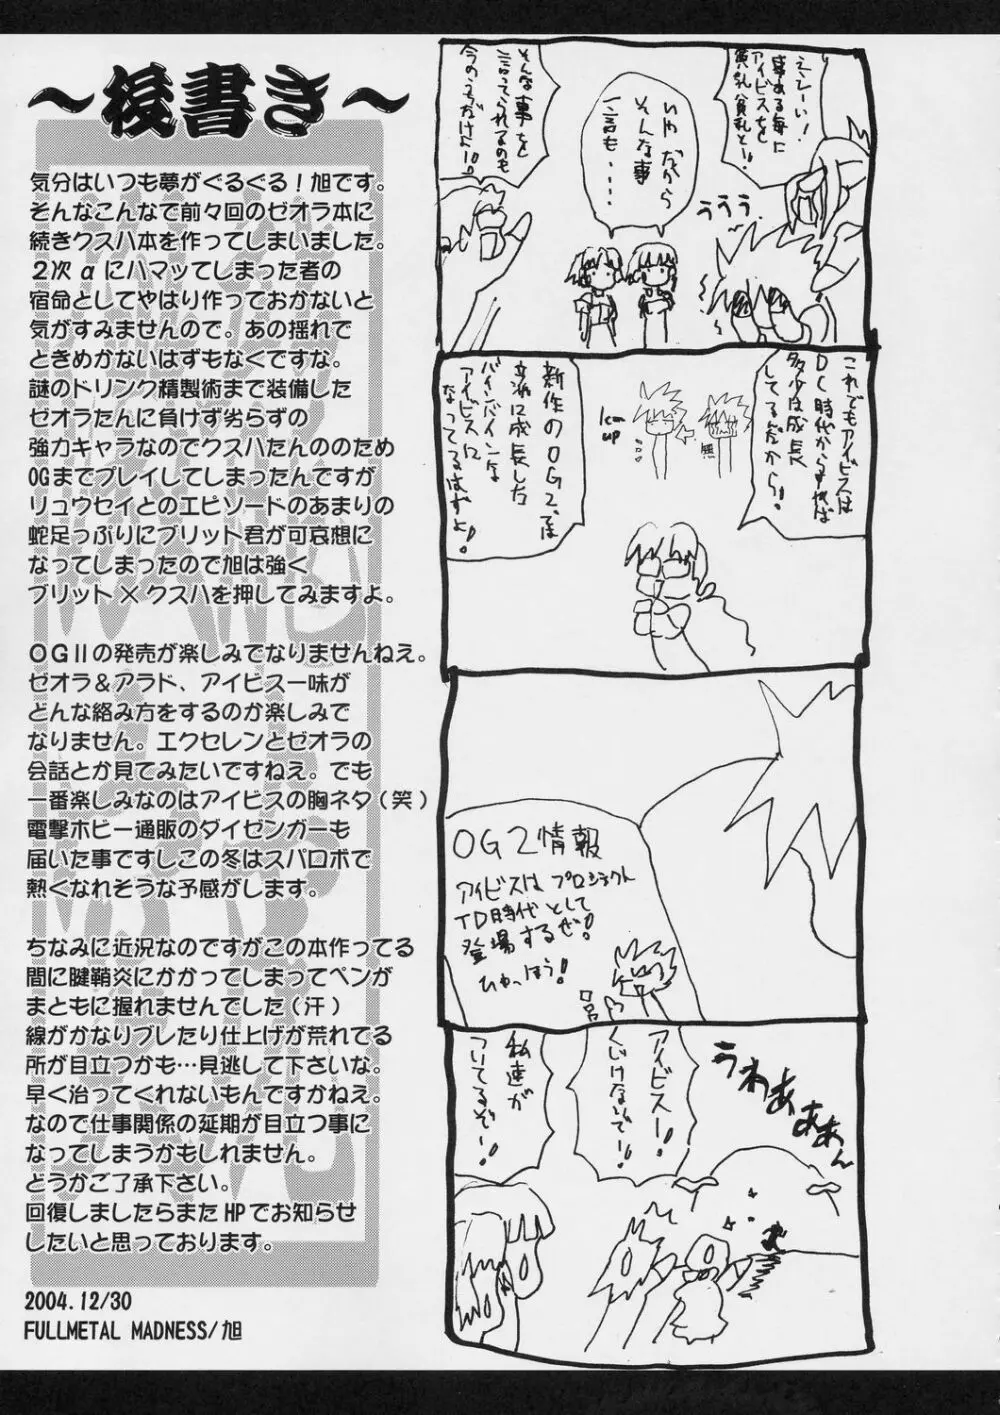 ～後書き～
気分はいつも夢がぐるぐる！旭です。
そんなこんなで前々回のゼオラ本に
続きクスハ本を作ってしまいました。
２次αにハマッてしまった者の
宿命としてやはり作っておかないと
気がすみませんので。あの揺れで
ときめかないはずもなくですな。
謎のドリンク精製術まで装備した
ゼオラたんに負けず劣らずの
強力キャラなのでクスハたんののため
OGまでプレイしてしまったんですが
リュウセイとのエピソードのあまりの
蛇足っぷりにブリット君が可哀想に
なってしまったので旭は強く
ブリット×クスハを押してみますよ。
ＯＧⅡの発売が楽しみでなりませんねえ。
ゼオラ＆アラド、アイビス一味が
どんな絡み方をするのか楽しみで
なりません。エクセレンとゼオラの
会話とか見てみたいですねえ。でも
一番楽しみなのはアイビスの胸ネタ（笑）
電撃ホビー通販のダイゼンガーも
届いた事ですしこの冬はスパロボで
熱くなれそうな予感がします。
ちなみに近況なのですがこの本作ってる
間に腱鞘炎にかかってしまってペンが
まともに握れませんでした（汗）
線がかなりブレたり仕上げが荒れてる
所が目立つかも…見逃して下さいな。
早く治ってくれないもんですかねえ。
なので仕事関係の延期が目立つ事に
なってしまうかもしれません。
どうかご了承下さい。
回復しましたらまたHPでお知らせ
したいと思っております。
2004.12/30
FULLMETAL MADNESS/旭
えーい！
事ある毎に
アイビスを
貧乳貧乳と！！
いやだから
そんな事
一言も・・・・
ううう
そんな事を
言ってられるのも
今のうちだけよ！！
これでもアイビスは
DC時代からすれば
多少は成長
してるんだから！
無
1cm
up
新作のOG2では
立派に成長した
バインバインな
アイビスに
なってるはずよ！
OG2情報
アイビスはプロジェクト
TD時代として
登場するぜ！
ひゃっほう！
うわあああぁん
アイビスー！
くじけないでー！
私達が
ついてるぞー！